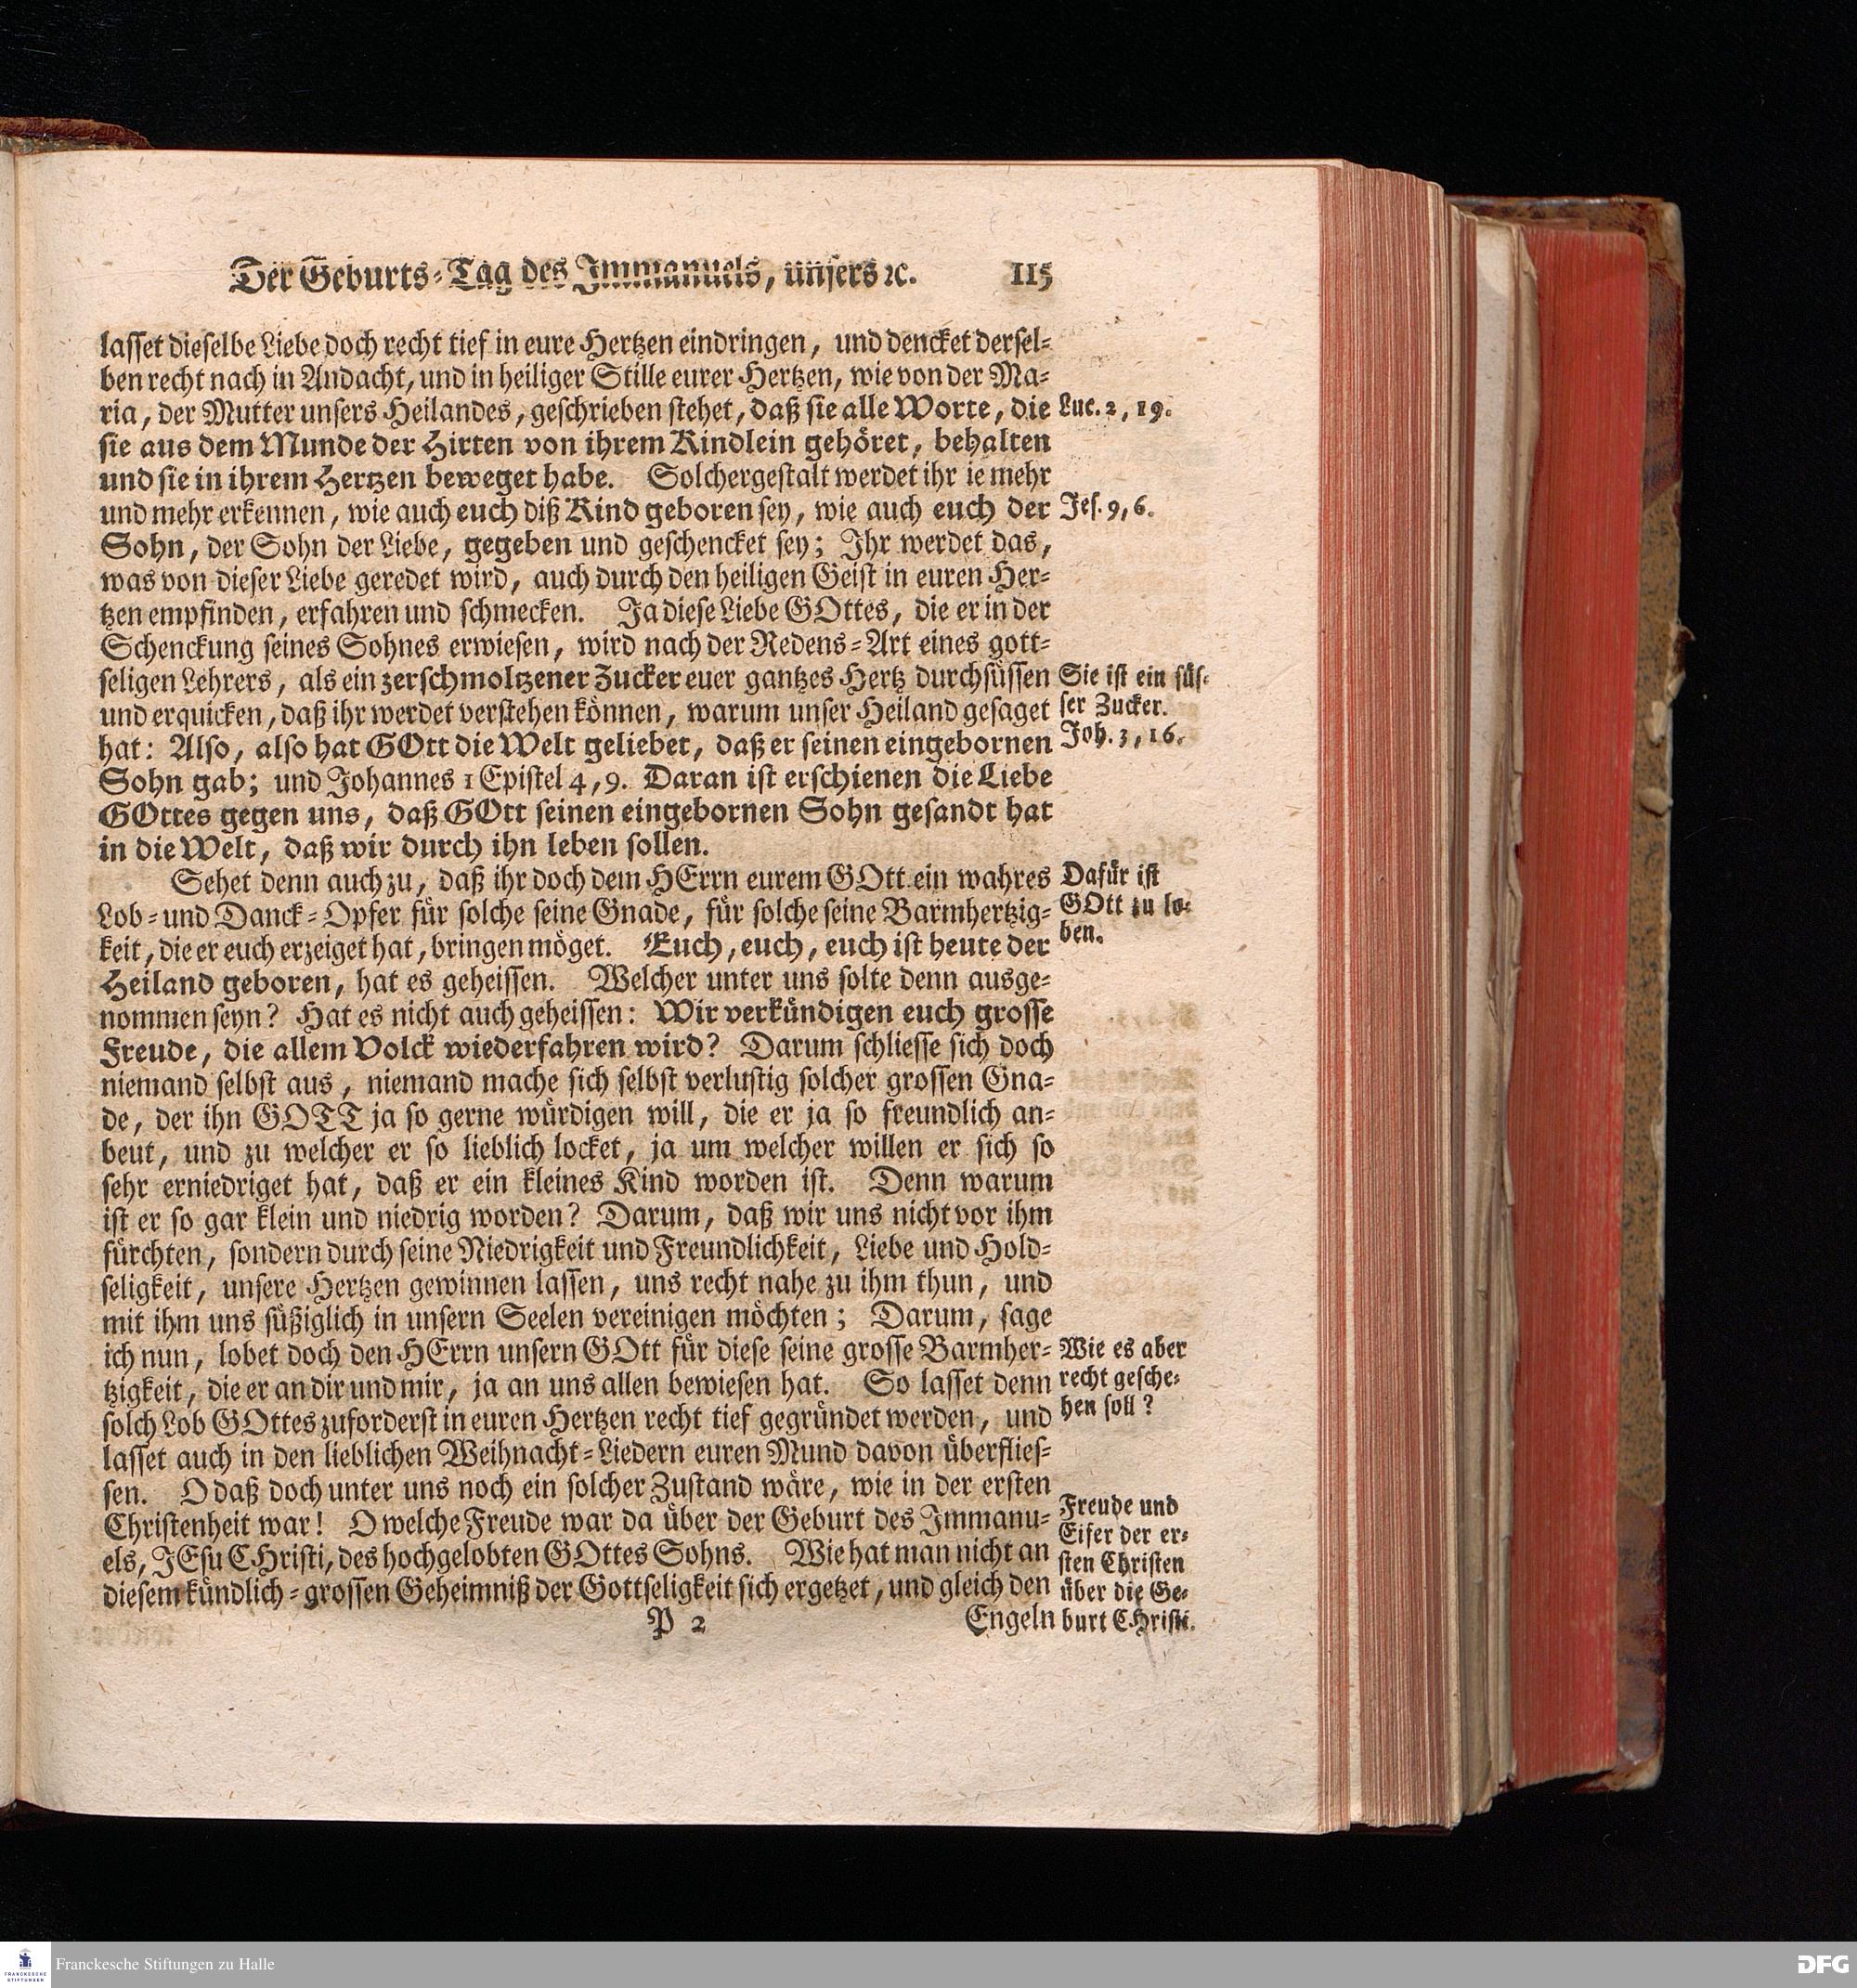 Der Geburts-Tag des Immanuels, unsers ꝛc. 115
lasset dieselbe Liebe doch recht tief in eure Hertzen eindringen, und dencket dersel-
ben recht nach in Andacht, und in heiliger Stille eurer Hertzen, wie von der Ma-
ria, der Mutter unsers Heilandes, geschrieben stehet, daß sie alle Worte, die
Luc. 2, 19.
sie aus dem Munde der Hirten von ihrem Kindlein gehöret, behalten
und sie in ihrem Hertzen beweget habe. Solchergestalt werdet ihr ie mehr
und mehr erkennen, wie auch euch diß Kind geboren sey, wie auch euch der
Jes. 9, 6.
Sohn, der Sohn der Liebe, gegeben und geschencket sey; Ihr werdet das,
was von dieser Liebe geredet wird, auch durch den heiligen Geist in euren Her-
tzen empfinden, erfahren und schmecken. Ja diese Liebe GOttes, die er in der
Schenckung seines Sohnes erwiesen, wird nach der Redens-Art eines gott-
seligen Lehrers, als ein zerschmoltzener Zucker euer gantzes Hertz durchsüssen
Sie ist ein süs-
und erquicken, daß ihr werdet verstehen können, warum unser Heiland gesaget
ser Zucker.
hat: Also, also hat GOtt die Welt geliebet, daß er seinen eingebornen
Joh. 3, 16.
Sohn gab; und Johannes 1 Epistel 4, 9. Daran ist erschienen die Liebe
GOttes gegen uns, daß GOtt seinen eingebornen Sohn gesandt hat
in die Welt, daß wir durch ihn leben sollen.
Sehet denn auch zu, daß ihr doch dem HErrn eurem GOtt ein wahres
Dafür ist
Lob- und Danck-Opfer für solche seine Gnade, für solche seine Barmhertzig-
GOtt zu lo-
keit, die er euch erzeiget hat, bringen möget. Euch, euch, euch ist heute der
ben.
Heiland geboren, hat es geheissen. Welcher unter uns solte denn ausge-
nommen seyn? Hat es nicht auch geheissen: Wir verkündigen euch grosse
Freude, die allem Volck wiederfahren wird? Darum schliesse sich doch
niemand selbst aus, niemand mache sich selbst verlustig solcher grossen Gna-
de, der ihn GOTT ja so gerne würdigen will, die er ja so freundlich an-
beut, und zu welcher er so lieblich locket, ja um welcher willen er sich so
sehr erniedriget hat, daß er ein kleines Kind worden ist. Denn warum
ist er so gar klein und niedrig worden? Darum, daß wir uns nicht vor ihm
fürchten, sondern durch seine Niedrigkeit und Freundlichkeit, Liebe und Hold-
seligkeit, unsere Hertzen gewinnen lassen, uns recht nahe zu ihm thun, und
mit ihm uns süßiglich in unsern Seelen vereinigen möchten; Darum, sage
ich nun, lobet doch den HErrn unsern GOtt für diese seine grosse Barmher-
Wie es aber
tzigkeit, die er an dir und mir, ja an uns allen bewiesen hat. So lasset denn
recht gesche-
solch Lob GOttes zuforderst in euren Hertzen recht tief gegründet werden, und
hen soll?
lasset auch in den lieblichen Weihnacht-Liedern euren Mund davon überflies-
sen. O daß doch unter uns noch ein solcher Zustand wäre, wie in der ersten
Christenheit war! O welche Freude war da über der Geburt des Immanu-
Freude und
Eifer der er-
els, JEsu CHristi, des hochgelobten GOttes Sohns. Wie hat man nicht an
sten Christen
diesem kündlich-grossen Geheimniß der Gottseligkeit sich ergetzet, und gleich den
über die Ge-
P 2 Engeln
burt CHristi.
FRANCKESCHE STIFTUNGEN
Franckesche Stiftungen zu Halle
DFG